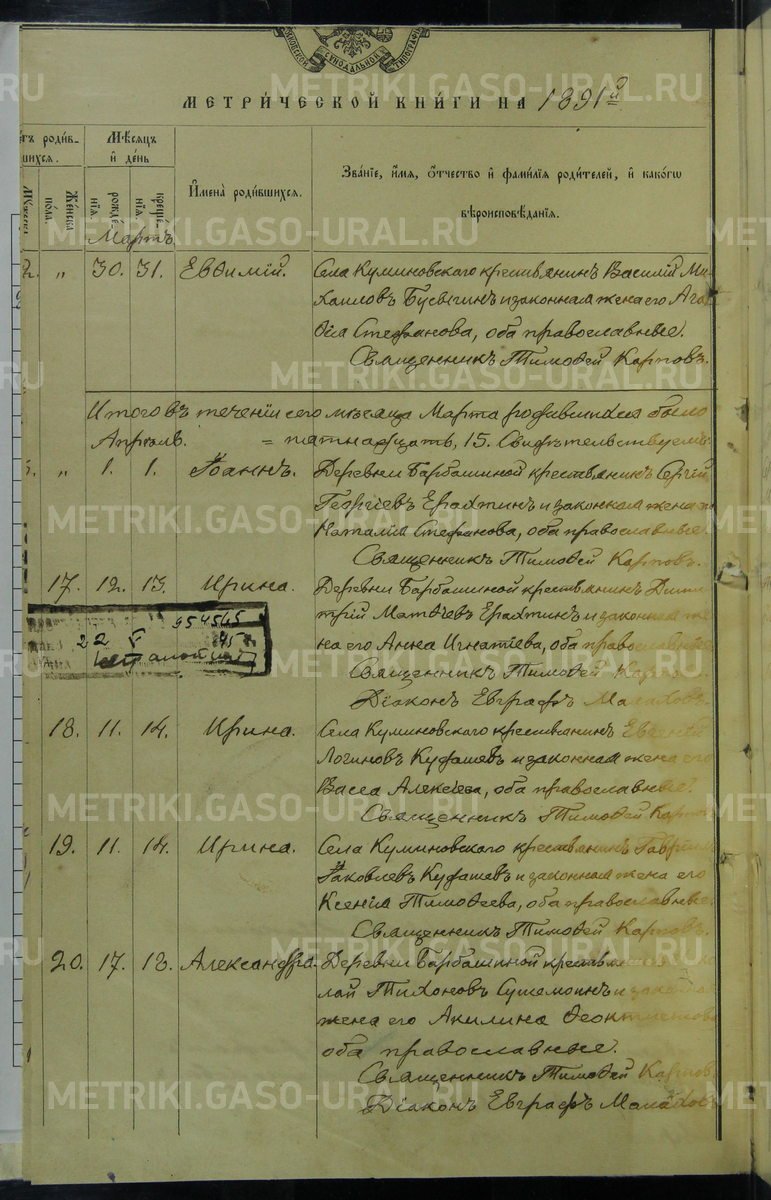 СѴНОДАЛЬНОЙ ТИПОГРАФІИ
МЕТРИ́ЧЕСКОЙ КНИ́ГИ НА 1891й
родив-
шихся.
Мѣсяцъ
и день
Женска
пола.
рожде-
нія.
креще-
нія.
Имена родившихся.
Званіе, имя, отчество и фамилія родителей, и какогѡ
вѣроисповѣданія.
Мартъ
„ 30. 31. Евѳимій. Села Куминовскаго крестьянинъ Василій Ми-
хаиловъ Бусыгинъ и законная жена его Ага-
ѳіа Стефанова, оба православные.
Священникъ Тимоѳей Карповъ.
Итого въ теченіи сего мѣсяца Марта родившихся было
Апрѣль. = пятнадцать, 15.
„ 1. 1. Іоаннъ. Деревни Барбашиной крестьянинъ Сергій
Георгіевъ Ерахтинъ и законная жена
Наталія Стефанова, оба православные.
Священникъ Тимоѳей Карповъ.
17. 12. 13. Ирина. Деревни Барбашиной крестьянинъ Дими-
трій Матѳіевъ Ерахтинъ и законная же-
на его Анна Игнатіева, оба православные.
Священникъ Тимоѳей
Діаконъ Евграфъ Малаховъ.
954565
22
18. 11. 14. Ирина. Села Куминовскаго крестьянинъ Евгеній
Логиновъ Кудашевъ и законная жена его
Васса Алексіева, оба православные.
Священникъ Тимоѳей Карповъ
19. 11. 14. Ирина. Села Куминовскаго крестьянинъ Гавріилъ
Іаковлевъ Кудашевъ и законная жена его
Ксенія Тимоѳеева, оба православные.
Священникъ Тимоѳей Карповъ.
20. 17. 18. Александра. Деревни Барбашиной
лай Тихоновъ и
жена его Акилина Ѳеоктистова
оба православные.
Священникъ Тимоѳей Карповъ
Діаконъ Евграфъ Малаховъ
METRIKI.GASO-URAL.RU